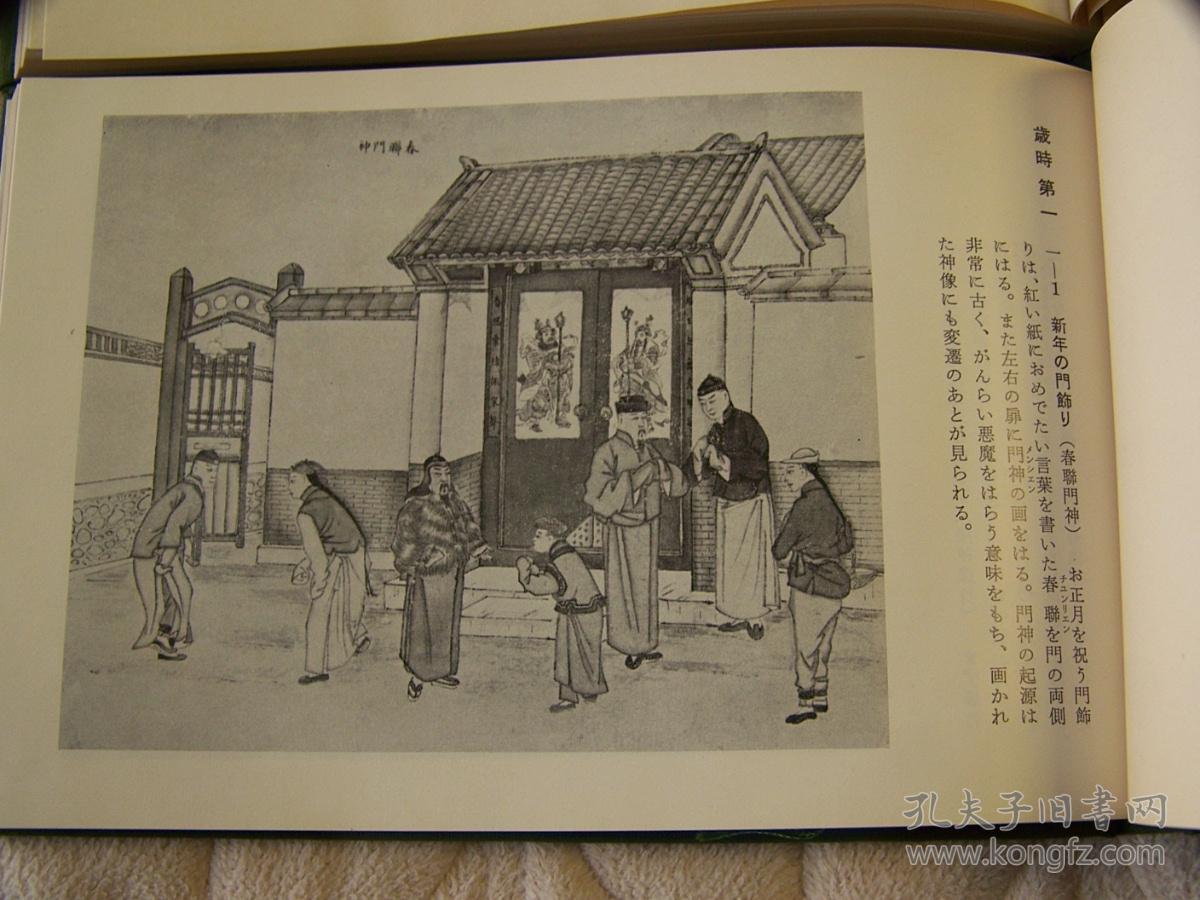 歳時第一
一—1 新年の門飾り（春聯門神） お正月を祝う門飾
りは、紅い紙におめでたい言葉を書いた春聯を門の両側
チュンリェン
にはる。また左右の扉に門神の画をはる。門神の起源は
メンシェン
非常に古く、がんらい悪魔をはらう意味をもち、画かれ
た神像にも変遷のあとが見られる。
春聯門神
孔夫子旧书网
www.kongfz.com